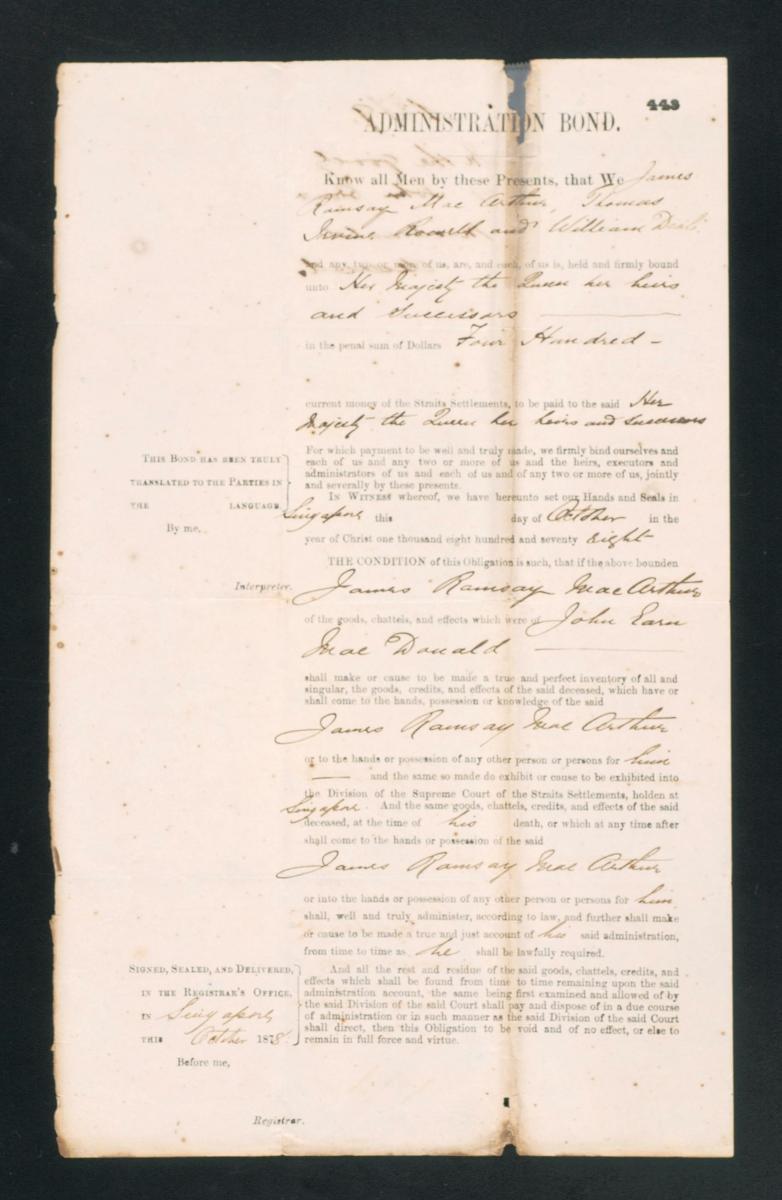 443
ADMINISTRATION BOND.
Know all Men by these Presents, that We James
Ramsay Mac Arthur, Thomas
Irvine and William
and any two or more of us, are, and each, of us is, held and firmly bound
unto Her Majesty the Queen her heirs
and Successors
in the penal sum of Dollars Four Hundred –
current money of the Straits Settlements, to be paid to the said Her
Majesty the Queen her heirs and successors
For which payment to be well and truly made, we firmly bind ourselves and
each of us and any two or more of us and the heirs, executors and
administrators of us and each of us and of any two or more of us, jointly
and severally by these presents.
THIS BOND HAS BEEN TRULY
TRANSLATED TO THE PARTIES IN
THE LANGUAGE
By me,
Interpreter.
IN WITNESS whereof, we have hereunto set our Hands and Seals in
Singapore this day of October in the
year of Christ one thousand eight hundred and seventy eight
THE CONDITION of this Obligation is such, that if the above bounden
James Ramsay Mac Arthur
of the goods, chattels, and effects which were of John Earn
Mac Donald
shall make or cause to be made a true and perfect inventory of all and
singular, the goods, credits, and effects of the said deceased, which have or
shall come to the hands, possession or knowledge of the said
James Ramsay Mac Arthur
or to the hands or possession of any other person or persons for him
and the same so made do exhibit or cause to be exhibited into
the Division of the Supreme Court of the Straits Settlements, holden at
Singapore. And the same goods, chattels, credits, and effects of the said
deceased, at the time of his death, or which at any time after
shall come to the hands or possession of the said
James Ramsay Mac Arthur
or into the hands or possession of any other person or persons for him
shall, well and truly administer, according to law, and further shall make
or cause to be made a true and just account of his said administration,
from time to time as he shall be lawfully required.
And all the rest and residue of the said goods, chattels, credits, and
effects which shall be found from time to time remaining upon the said
administration account, the same being first examined and allowed of by
the said Division of the said Court shall pay and dispose of in a due course
of administration or in such manner as the said Division of the said Court
shall direct, then this Obligation to be void and of no effect, or else to
remain in full force and virtue.
SIGNED, SEALED, AND DELIVERED,
IN THE REGISTRAR'S OFFICE,
IN Singapore
THIS October 1878.
Before me,
Registrar.